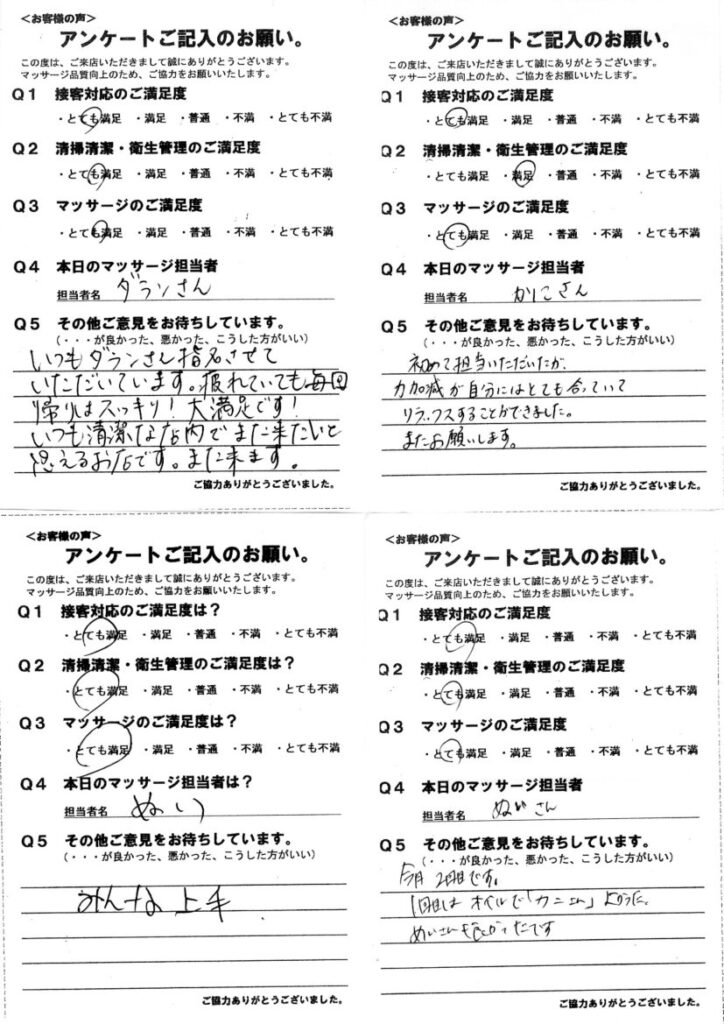 <お客様の声>
アンケートご記入のお願い。
この度は、ご来店いただきまして誠にありがとうございます。
マッサージ品質向上のため、ご協力をお願いいたします。
Q1 接客対応のご満足度
・とても満足 ・満足 ・普通 ・不満 ・とても不満
Q2 清掃清潔・衛生管理のご満足度
・とても満足 ・満足 ・普通 ・不満 ・とても不満
Q3 マッサージのご満足度
・とても満足 ・満足 ・普通 ・不満 ・とても不満
Q4 本日のマッサージ担当者
担当者名 ダランさん
Q5 その他ご意見をお待ちしています。
(・・・が良かった、悪かった、こうした方がいい)
いつもダランさん指名させて
いただいています。疲れていても毎回
帰りはスッキリ!大満足です!
いつも清潔な店内でまた来たいと
思えるお店です。また来ます。
ご協力ありがとうございました。
<お客様の声>
アンケートご記入のお願い。
この度は、ご来店いただきまして誠にありがとうございます。
マッサージ品質向上のため、ご協力をお願いいたします。
Q1 接客対応のご満足度
・とても満足 ・満足 ・普通 ・不満 ・とても不満
Q2 清掃清潔・衛生管理のご満足度
・とても満足 ・満足 ・普通 ・不満 ・とても不満
Q3 マッサージのご満足度
・とても満足 ・満足 ・普通 ・不満 ・とても不満
Q4 本日のマッサージ担当者
担当者名 かりこさん
Q5 その他ご意見をお待ちしています。
(・・・が良かった、悪かった、こうした方がいい)
初めて担当いただいたが、
力加減が自分にはとても合っていて
リラックスすることができました。
またお願いします。
ご協力ありがとうございました。
<お客様の声>
アンケートご記入のお願い。
この度は、ご来店いただきまして誠にありがとうございます。
マッサージ品質向上のため、ご協力をお願いいたします。
Q1 接客対応のご満足度は?
・とても満足 ・満足 ・普通 ・不満 ・とても不満
Q2 清掃清潔・衛生管理のご満足度は?
・とても満足 ・満足 ・普通 ・不満 ・とても不満
Q3 マッサージのご満足度は?
・とても満足 ・満足 ・普通 ・不満 ・とても不満
Q4 本日のマッサージ担当者は?
担当者名 ぬい
Q5 その他ご意見をお待ちしています。
(・・・が良かった、悪かった、こうした方がいい)
みんな上手
ご協力ありがとうございました。
<お客様の声>
アンケートご記入のお願い。
この度は、ご来店いただきまして誠にありがとうございます。
マッサージ品質向上のため、ご協力をお願いいたします。
Q1 接客対応のご満足度
・とても満足 ・満足 ・普通 ・不満 ・とても不満
Q2 清掃清潔・衛生管理のご満足度
・とても満足 ・満足 ・普通 ・不満 ・とても不満
Q3 マッサージのご満足度
・とても満足 ・満足 ・普通 ・不満 ・とても不満
Q4 本日のマッサージ担当者
担当者名 さん
Q5 その他ご意見をお待ちしています。
(・・・が良かった、悪かった、こうした方がいい)
今月2回目です。
1回目はオイルで
良かったです
ご協力ありがとうございました。